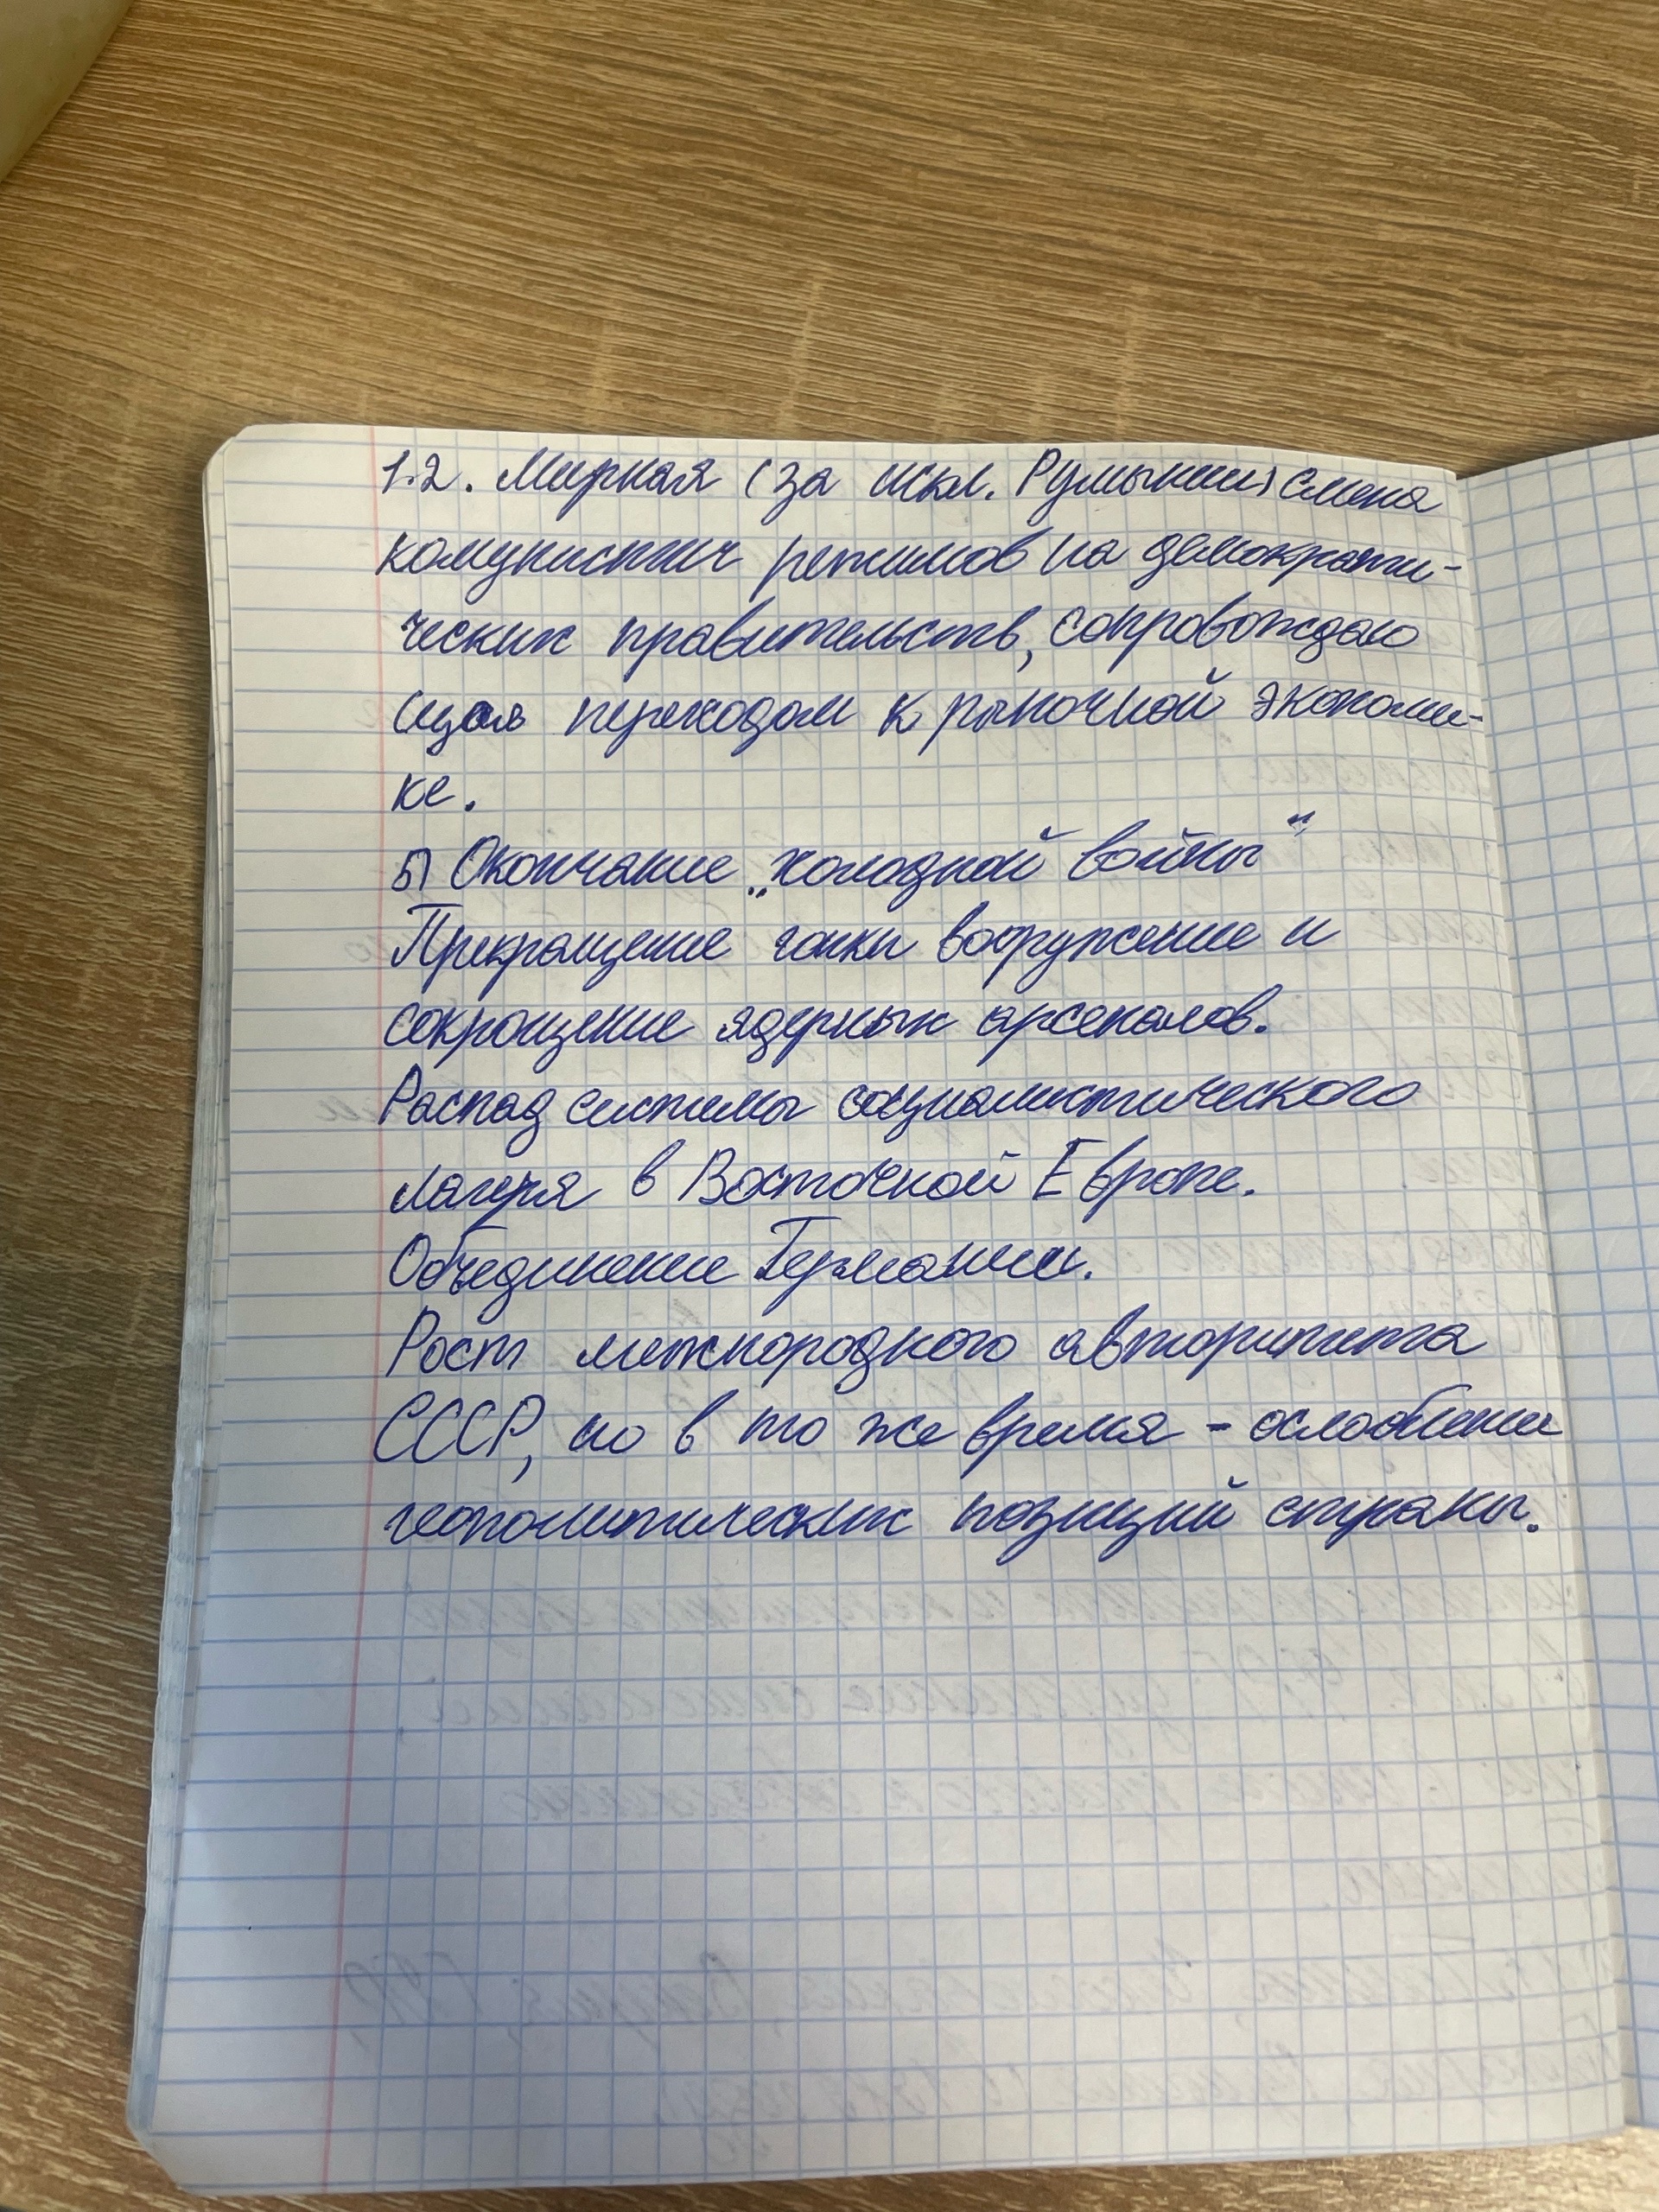 1.2. Мирная (за искл. Румынии) смена
комунистич режимов на демократи-
ческих правительств, сопровождаю
щаяся переходом к рыночной экономи-
ке.
5) Окончание „холодной войны“
Прекращение гонки вооружение и
сокрощение ядерных арсеналов.
Распад системы социалистического
лагеря в Восточной Европе.
Объединение Германии.
Рост межнородного авторитета
СССР, но в то же время - ослабление
геополитических позиций страны.